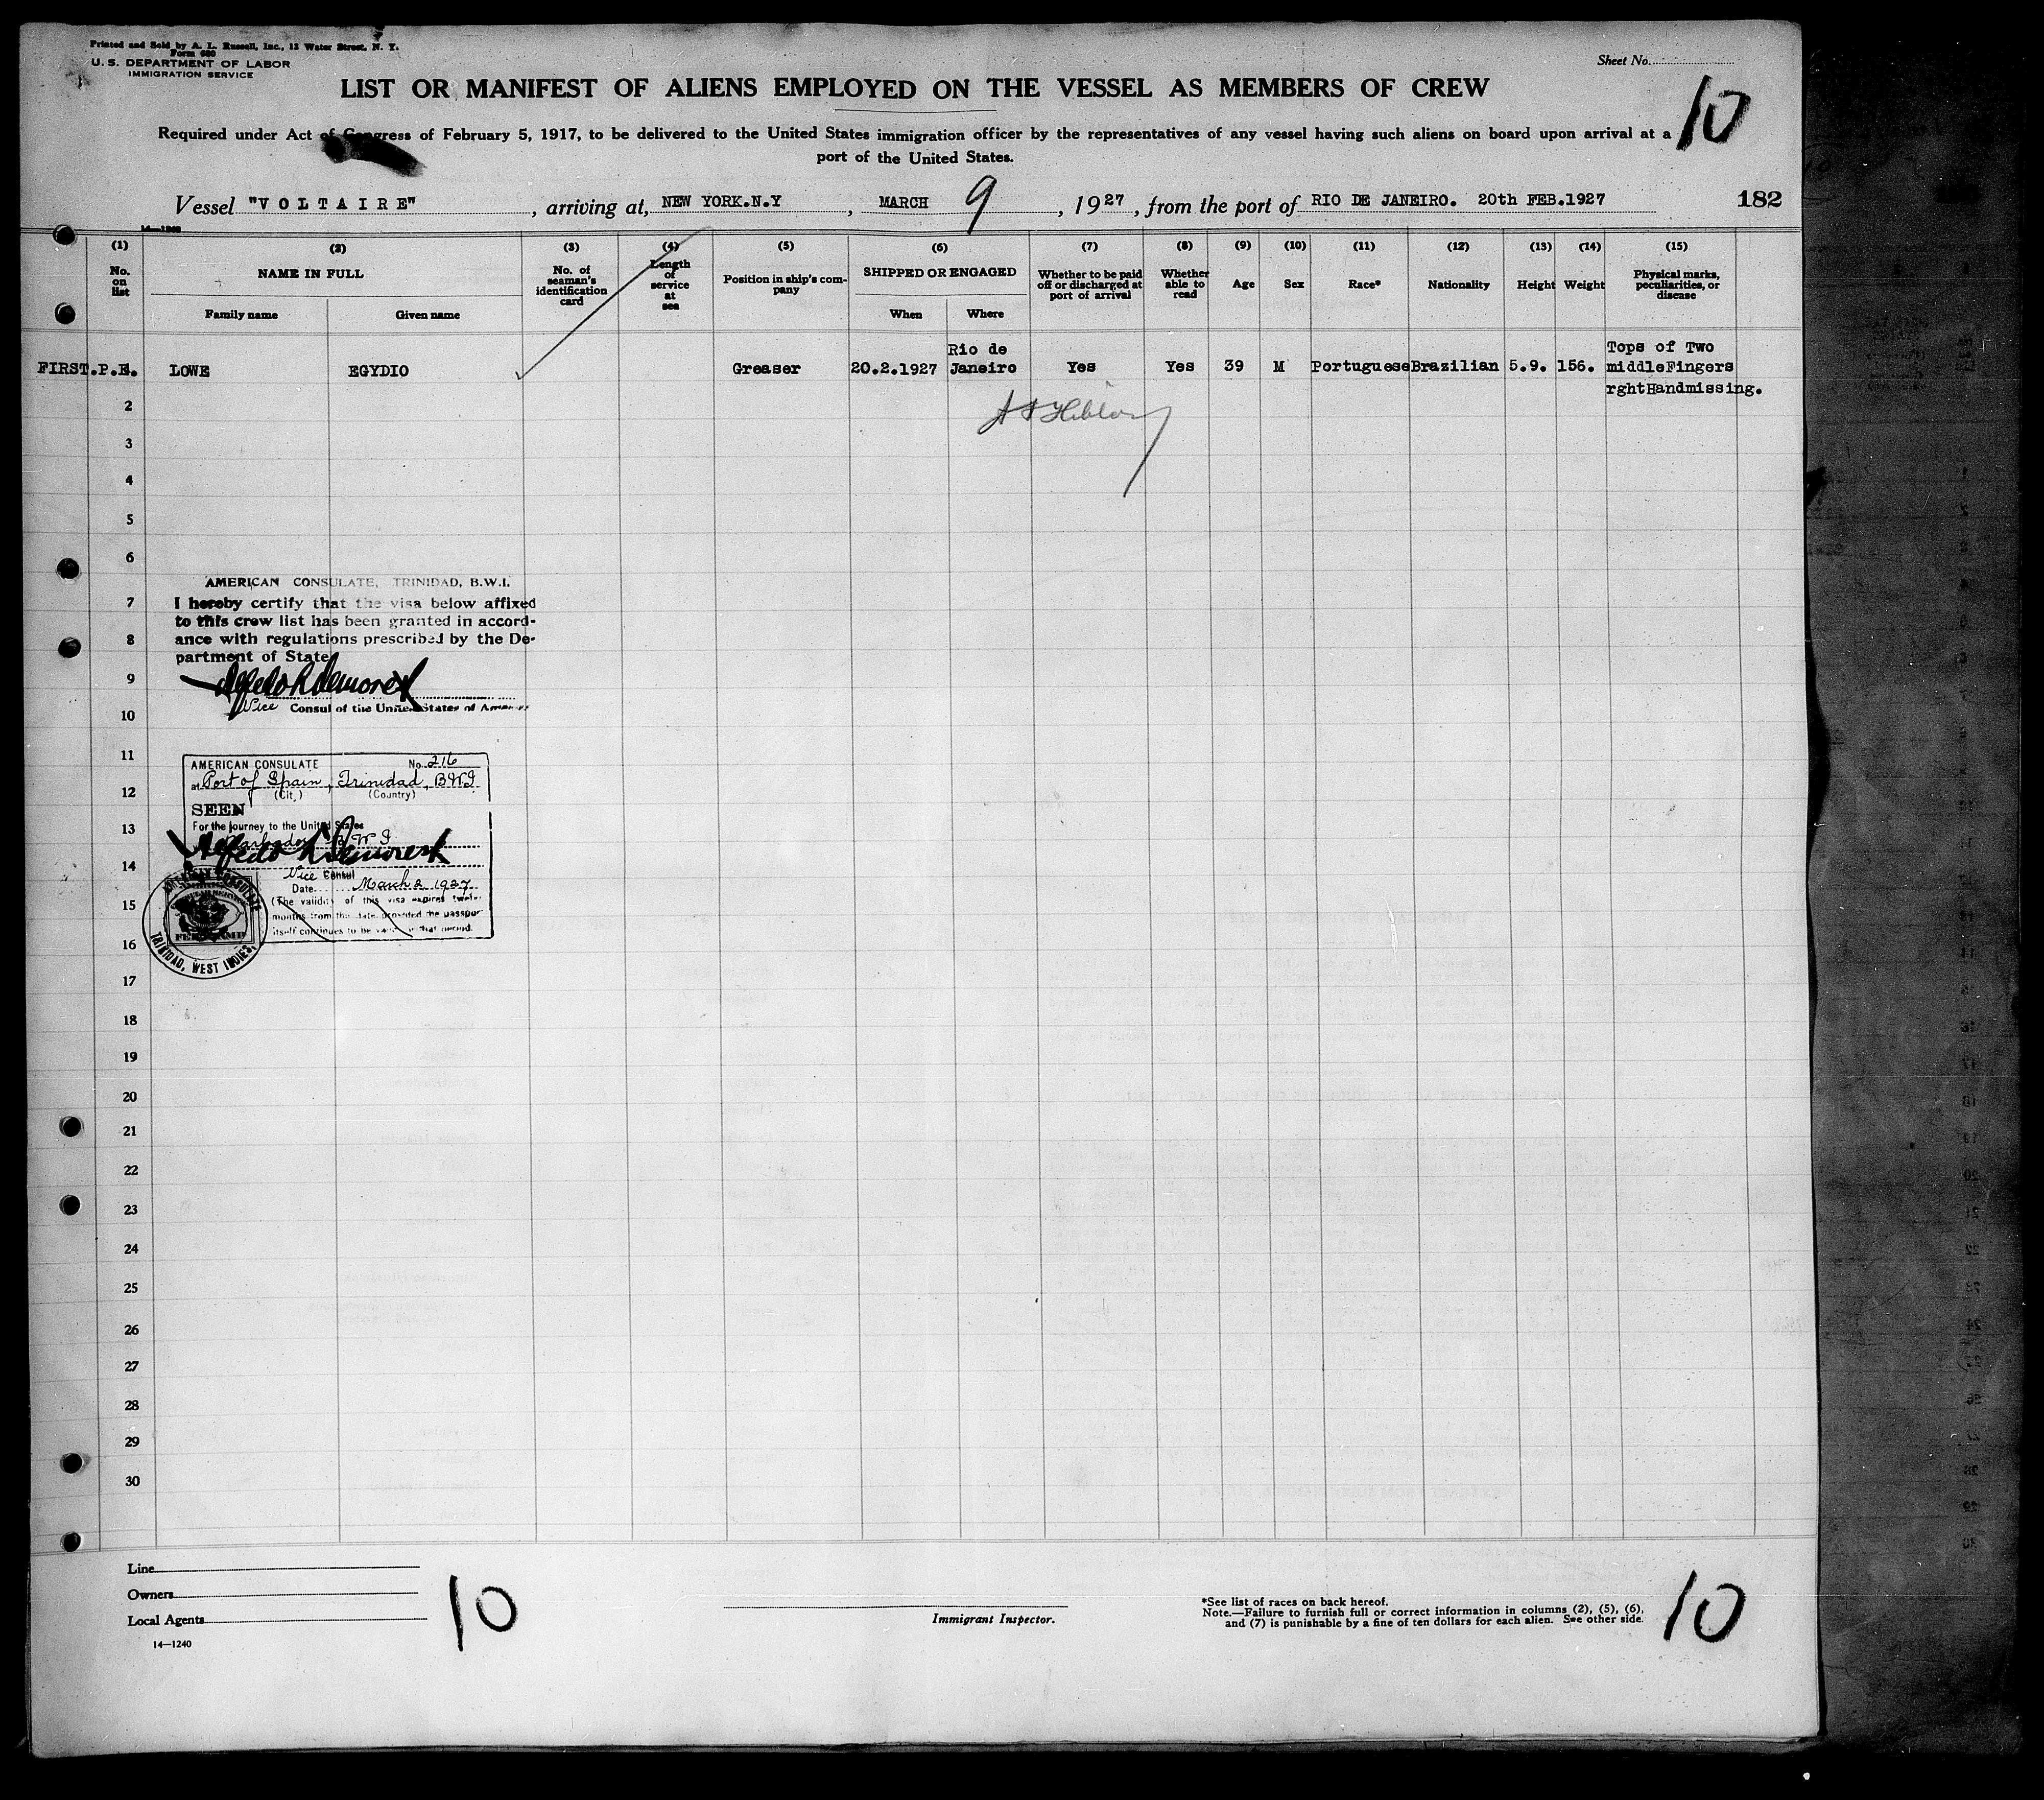 Printed and Sold by A. L. Russell, Inc., 13 Water Street, N. Y.
Form 680
U. S. DEPARTMENT OF LABOR
IMMIGRATION SERVICE
Sheet No.
LIST OR MANIFEST OF ALIENS EMPLOYED ON THE VESSEL AS MEMBERS OF CREW
10
Required under Act of Congress of February 5, 1917, to be delivered to the United States immigration officer by the representatives of any vessel having such aliens on board upon arrival at a
port of the United States.
Vessel "VOLTAIRE", arriving at, NEW YORK.N.Y, MARCH 9, 1927, from the port of RIO DE JANEIRO. 20th FEB.1927
182
14—1240
(1) (2) (3) (4) (5) (6) (7) (8) (9) (10) (11) (12) (13) (14) (15)
No. on list
NAME IN FULL
Family name
Given name
No. of seaman's identification card
Length of service at sea
Position in ship's company
SHIPPED OR ENGAGED
When
Where
Whether to be paid off or discharged at port of arrival
Whether able to read
Age
Sex
Race*
Nationality
Height
Weight
Physical marks, peculiarities, or disease
FIRST.P.E. LOWE EGYDIO Greaser 20.2.1927 Rio de Janeiro Yes Yes 39 M Portuguese Brazilian 5.9. 156. Tops of Two
middleFingers
rghtHandmissing.
2
3
4
5
6
AMERICAN CONSULATE, TRINIDAD, B.W.I.
7
I hereby certify that the visa below affixed
to this crew list has been granted in accord-
8
ance with regulations prescribed by the De-
partment of State
9
Alfredo R Demorest
Vice Consul of the United States of America
10
11
AMERICAN CONSULATE No. 216
at Port of Spain, Trinidad, B.W.I.
12
(City) (Country)
SEEN
For the journey to the United States
13
Barbados B W I
Alfredo R Demorest
14
Vice Consul
Date March 2 1927
15
(The validity of this visa expires twelve
months from this date provided the passport
itself continues to be valid for that period.
AMERICAN CONSULATE
FEE STAMP
TRINIDAD, WEST INDIES.
16
17
18
19
20
21
22
23
24
25
26
27
28
29
30
Line
Owners
Local Agents
14—1240
10
Immigrant Inspector.
*See list of races on back hereof.
Note.—Failure to furnish full or correct information in columns (2), (5), (6),
and (7) is punishable by a fine of ten dollars for each alien. See other side.
10